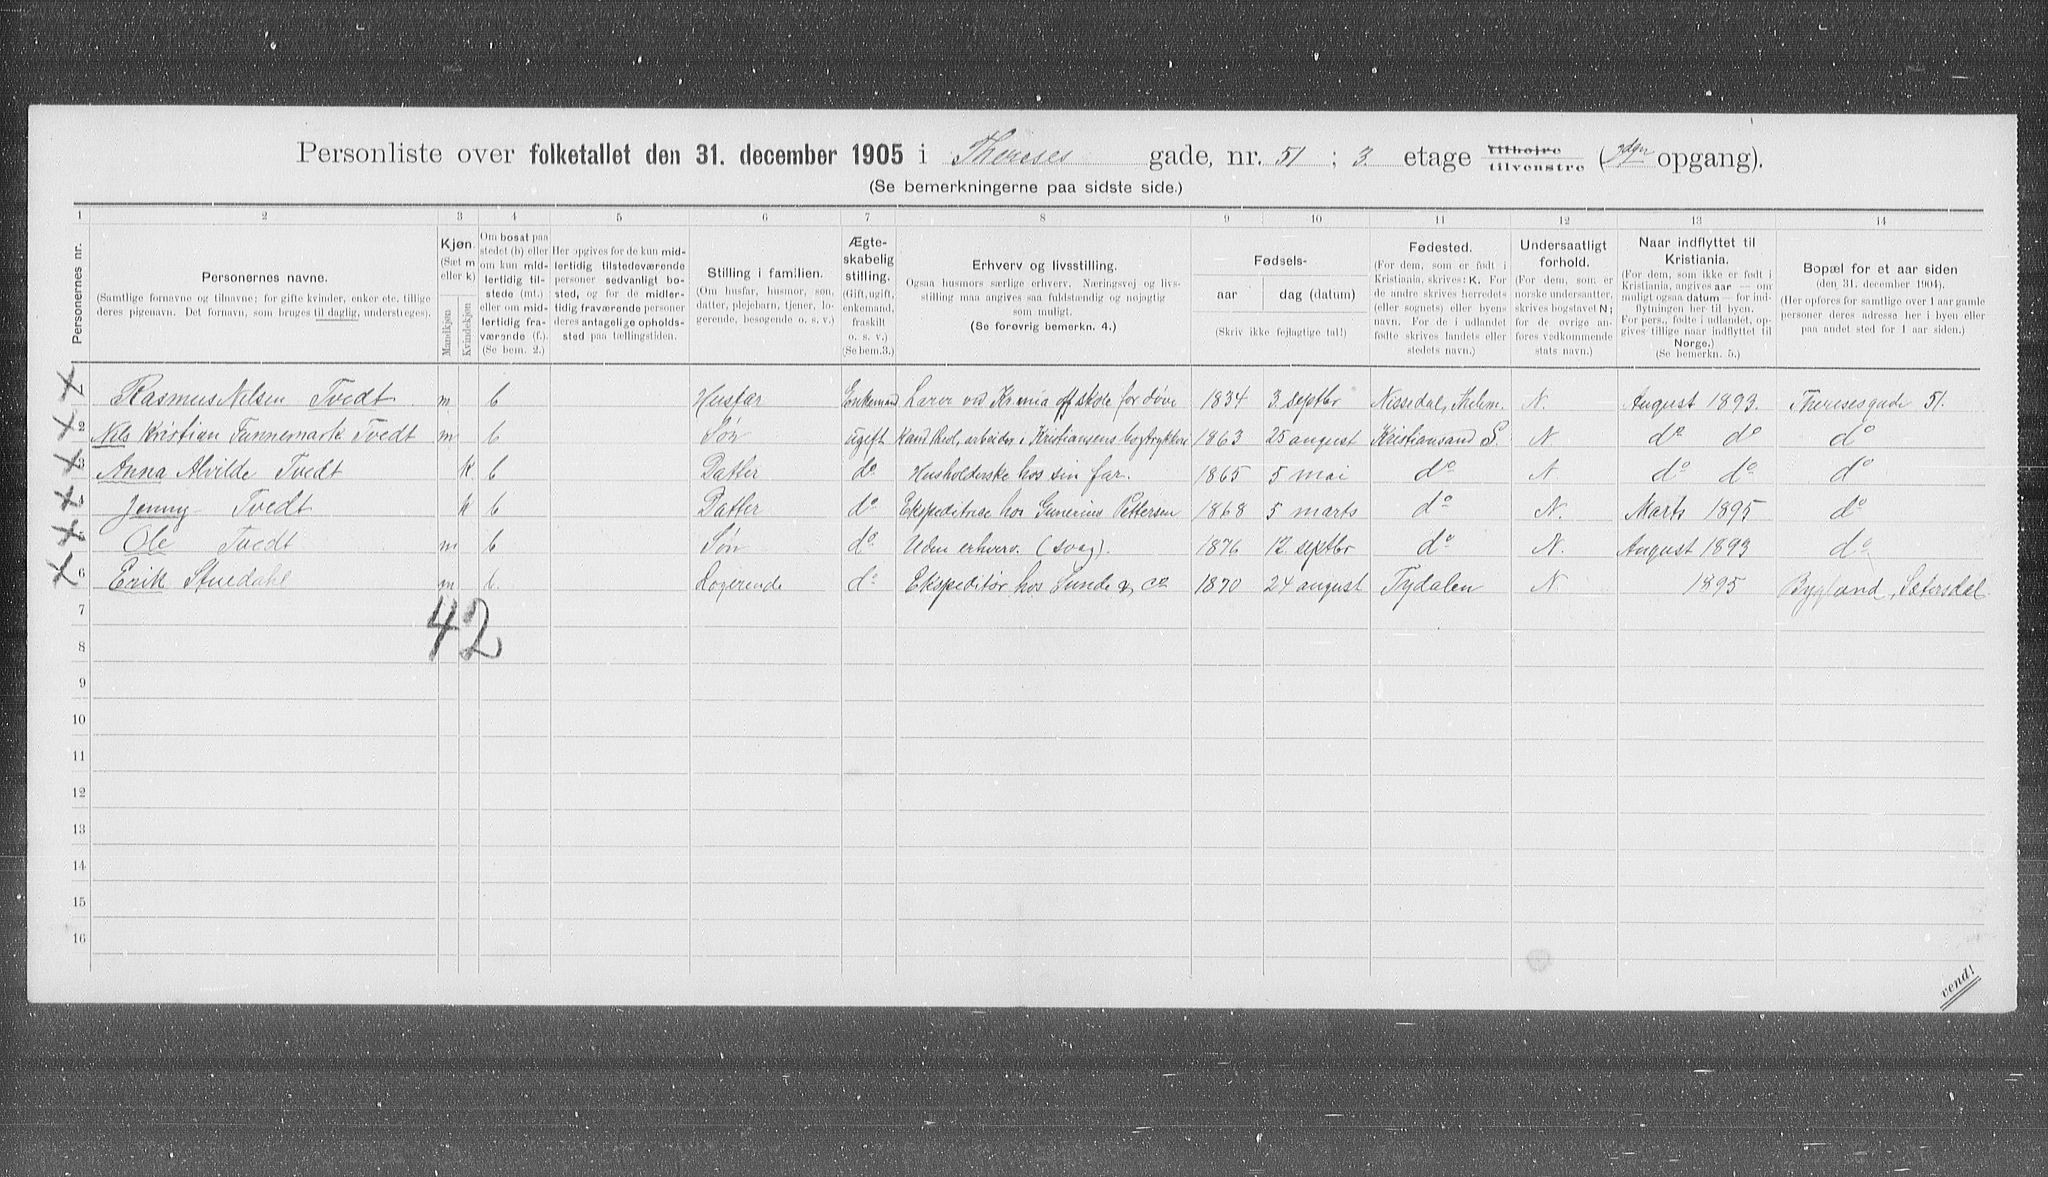 Personliste over folketallet den 31. december 1905 i Thereses gade, nr. 51 ; 3 etage tilhøire tilvenstre ( opgang).
(Se bemerkningerne paa sidste side.)
1 2 3 4 5 6 7 8 9 10 11 12 13 14
Personernes nr.
Personernes navne.
(Samtlige fornavne og tilnavne; for gifte kvinder, enker etc. tillige
deres pigenavn. Det fornavn, som bruges til daglig, understreges).
Kjøn.
(Sæt m
eller k)
Mandkjøn
Kvindekjøn
Om bosat paa
stedet (b) eller
om kun mid-
lertidig til-
stede (mt.)
eller om mid-
lertidig fra-
værende (f.).
(Se bem. 2.)
Her opgives for de kun mid-
lertidig tilstedeværende
personer sedvanligt bo-
sted, og for de midler-
tidig fraværende personer
deres antagelige opholds-
sted paa tællingstiden.
Stilling i familien.
(Om husfar, husmor, søn,
datter, plejebarn, tjener, lo-
gerende, besøgende o. s. v.)
Ægte-
skabelig
stilling.
(Gift, ugift,
enkemand,
fraskilt
o. s. v.)
(Se bem. 3.)
Erhverv og livsstilling.
Ogsaa husmors særlige erhverv. Næringsvej og livs-
stilling maa angives saa fuldstændig og nøjagtig
som muligt.
(Se forøvrig bemerkn. 4.)
Fødsels-
aar
dag (datum)
(Skriv ikke fejlagtige tal!)
Fødested.
(For dem, som er født i
Kristiania, skrives: K. For
de andre skrives herredets
(eller sognets) eller byens
navn. For de i udlandet
fødte skrives landets eller
stedets navn.)
Undersaatligt
forhold.
(For dem, som er
norske undersaatter,
skrives bogstavet N;
for de øvrige an-
føres vedkommende
stats navn.)
Naar indflyttet til
Kristiania.
(For dem, som ikke er født i
Kristiania, angives aar — om
muligt ogsaa datum — for ind-
flytningen her til byen.
For pers., fødte i udlandet, op-
gives tillige naar indflyttet til
Norge.)
(Se bemerkn. 5.)
Bopæl for et aar siden
(den 31. december 1904).
(Her opføres for samtlige over 1 aar gamle
personer deres adresse her i byen eller
paa andet sted for 1 aar siden.)
1 Rasmus Nilsen Tvedt m b Husfar Enkemand Lærer ved Kr.ania off skole for døve 1834 3 septbr Nissedal, Thelm. N. August 1893. Theresesgade 51.
2 Nils Kristian Funnemark Tvedt m b Søn ugift Kand. theol, arbeider i Kristiansens bogtrykkeri 1863 25 august Kristiansand S. N do do do
3 Anna Alvilde Tvedt k b Datter do Husholderske hos sin far. 1865 5 mai do N. do do do
4 Jenny Tvedt k b Datter do Ekspeditrice hos Gunerius Pettersen 1868 5 marts do N. Marts 1895 do
5 Ole Tvedt m b Søn do Uden erhverv. (svag). 1876 12 septbr do N. August 1893 do
6 Erik Stuedahl m b. Logerende do Ekspeditør hos Sunde & Co 1870 24 august Tydalen N 1895 Bygland, Sætersdal.
42
7
8
9
10
11
12
13
14
15
16
vend!